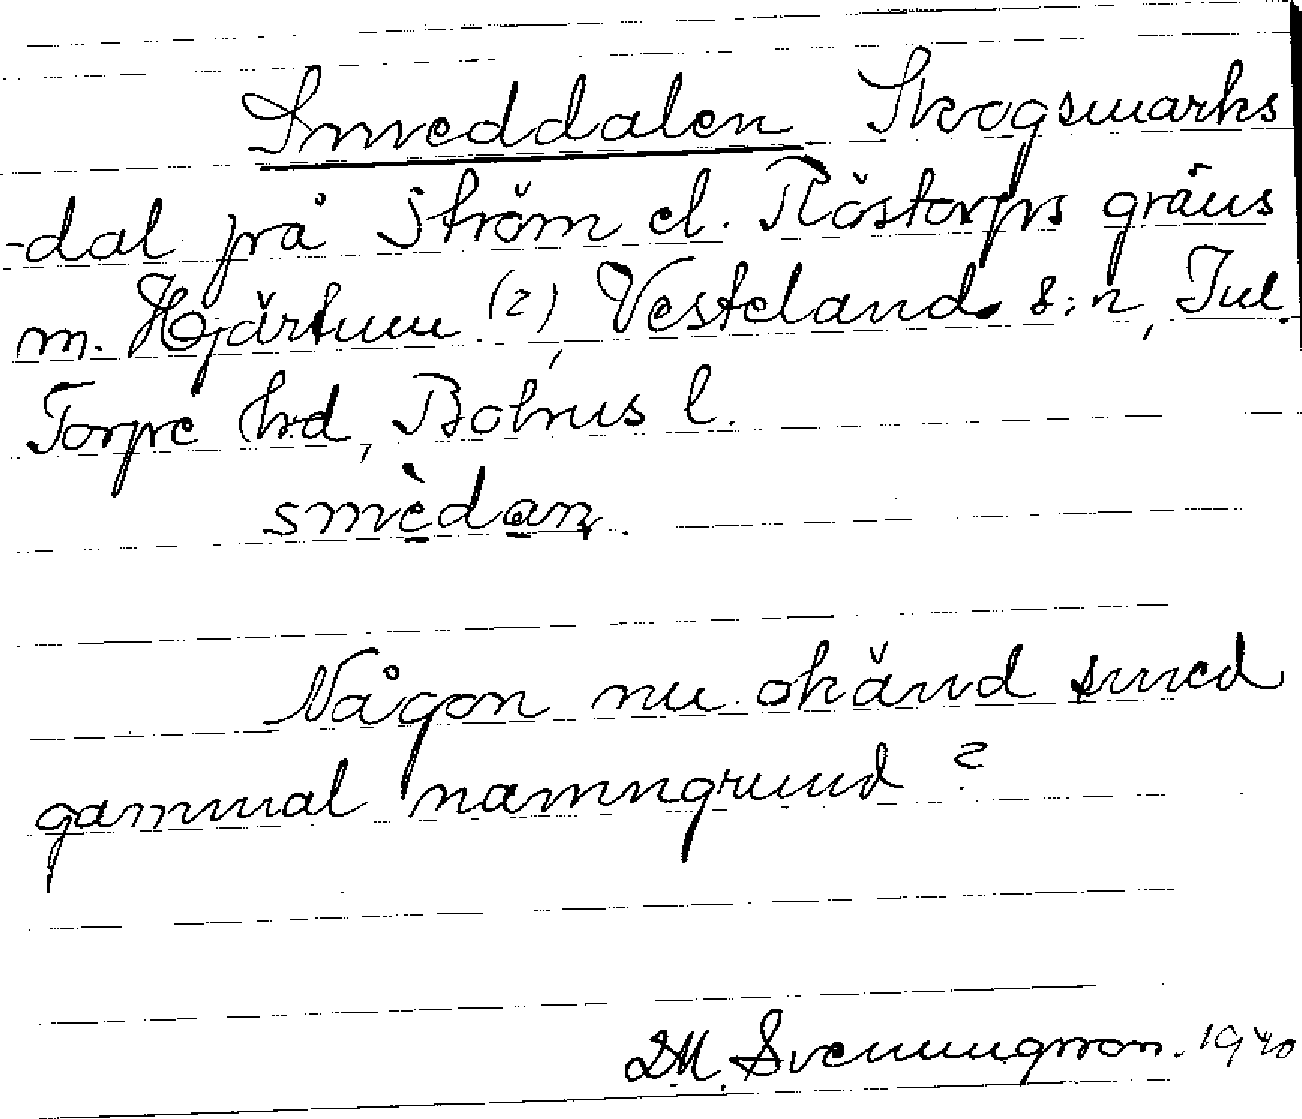 Smeddalen Skogsmarks
-dal på Ström el. Röstorps gräns
m. Hjärtum (2), Vesteland s:n, Tul.
Torpe hd, Bohus l.
smèdan.
Någon nu okänd smed
gammal namngrund?
DM. Svenungsson. 1940